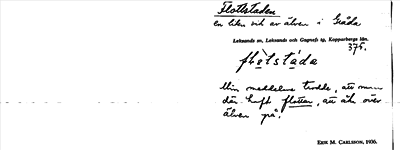 Flottstaden
en liten vik av älven i Gråda
Leksands sn, Leksands och Gagnefs tg, Kopparbergs län.
375.
flòtstáda
Min meddelare trodde, att man
där haft flottar, att åka över
älven på.
ERIK M. CARLSSON, 1936.